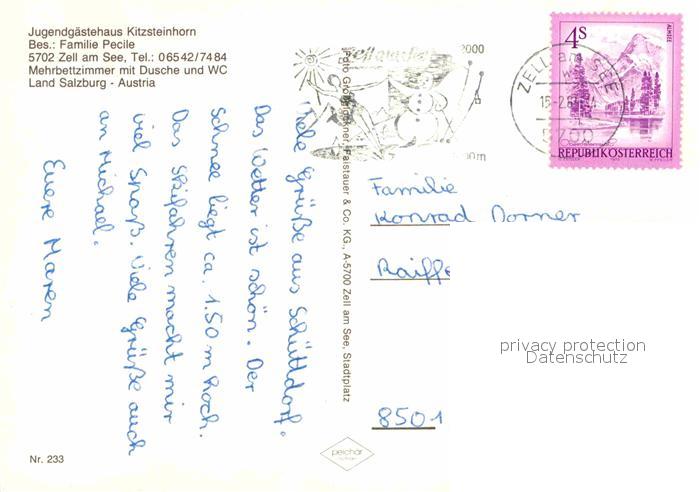 Jugendgästehaus Kitzsteinhorn
Bes.: Familie Pecile
5702 Zell am See, Tel.: 06542/7484
Mehrbettzimmer mit Dusche und WC
Land Salzburg - Austria
Viele Grüße aus Schüttdorf.
Das Wetter ist schön. Der
Schnee liegt ca. 1.50 m hoch.
Das Skifahren macht mir
viel Spaß. Viele Grüße auch
an Michael.
Euere Maren
Nr. 233
Foto Großbruckner, Faistauer & Co. KG., A-5700 Zell am See, Stadtplatz
peichär
2000
ZELL am SEE
5700
4S
ALMSEE
REPUBLIK ÖSTERREICH
Familie
Konrad Dorner
Raiffe
8501
privacy protection
Datenschutz